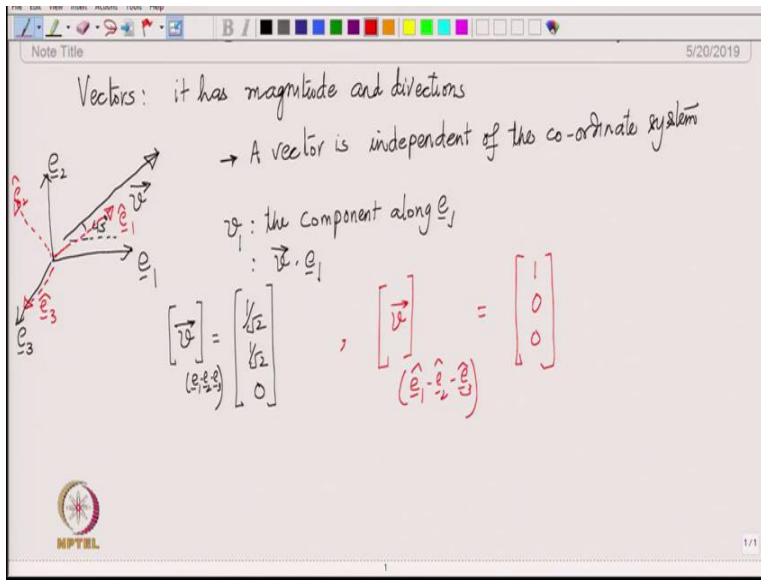 File Edit View Insert Actions Tools Help
B I
Note Title
5/20/2019
Vectors: it has magnitude and directions
→ A vector is independent of the co-ordinate system
e₂
ê₂
v⃗
45°
ê₁
e₁
ê₃
e₃
v₁ : the component along e₁
: v⃗ · e₁
[v⃗] (e₁-e₂-e₃) = [1/√2 1/√2 0] , [v⃗] (ê₁-ê₂-ê₃) = [1 0 0]
NPTEL
1/1
1